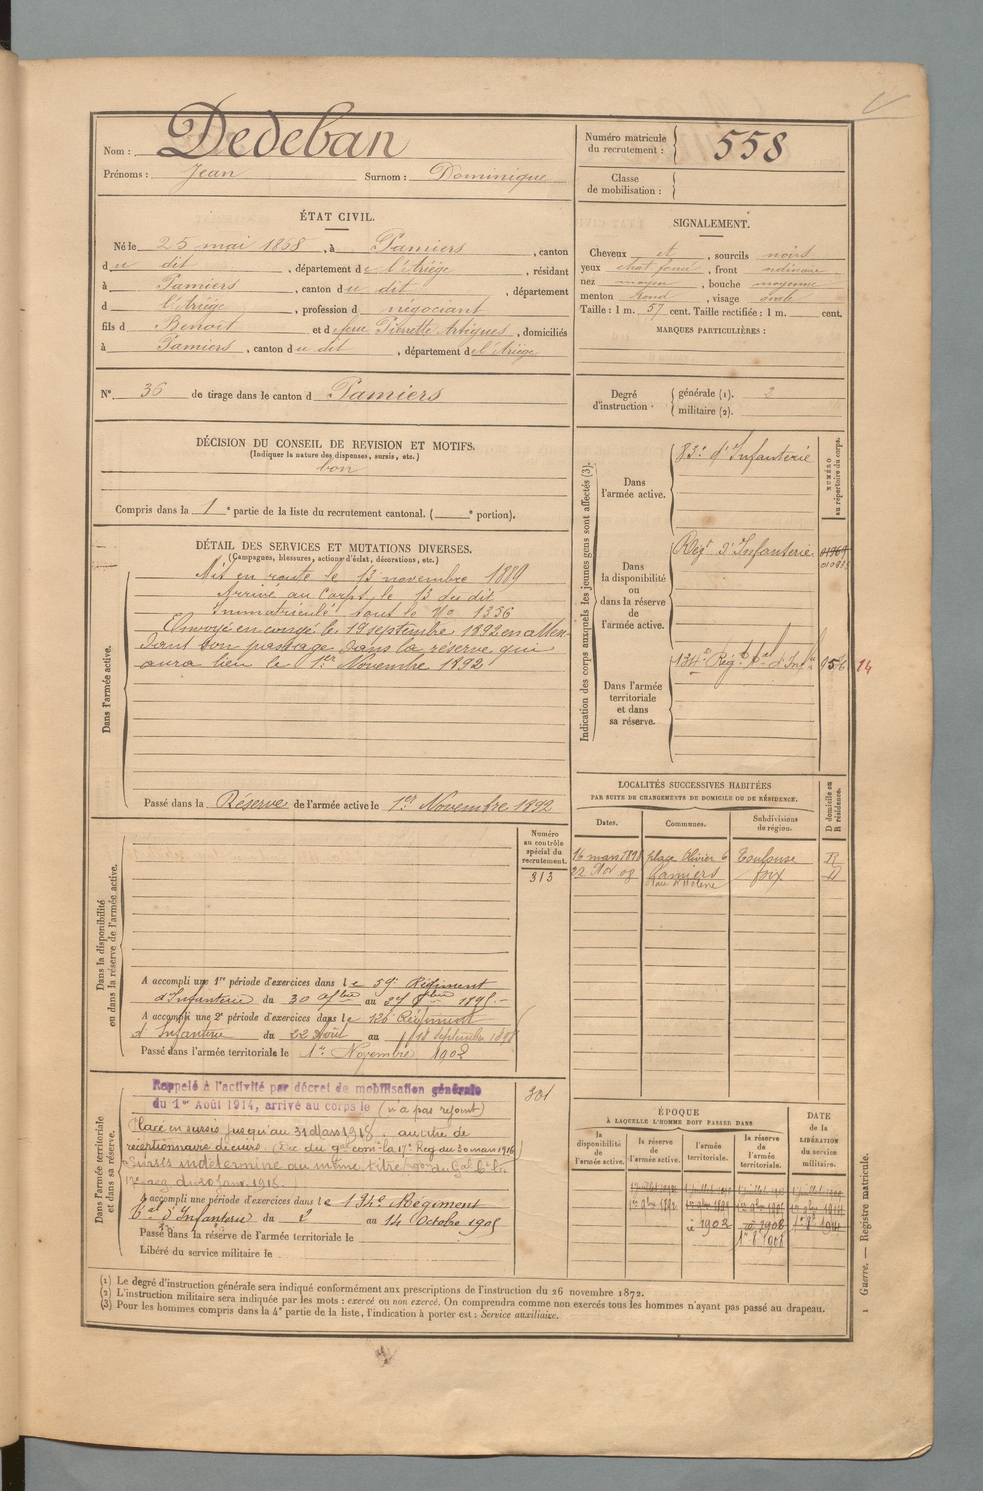 Nom : Dedeban
Prénoms : Jean Surnom : Dominique
Numéro matricule du recrutement : 558
Classe de mobilisation :
ÉTAT CIVIL.
Né le 25 mai 1868, à Pamiers, canton
du dit, département de l'Ariège, résidant
à Pamiers, canton du dit, département
d l'Ariège, profession d négociant
fils d Benoit et de feue Pierrette Artigues, domiciliés
à Pamiers, canton du dit, département de l'Ariège
N° 36 de tirage dans le canton d Pamiers
SIGNALEMENT.
Cheveux et, sourcils noirs
yeux, front ordinaire
nez moyen, bouche moyenne
menton rond, visage ovale
Taille : 1 m. 57 cent. Taille rectifiée : 1 m. cent.
MARQUES PARTICULIÈRES :
Degré d'instruction. générale (1). 2
militaire (2).
DÉCISION DU CONSEIL DE REVISION ET MOTIFS.
(Indiquer la nature des dispenses, sursis, etc.)
bon
Compris dans la 1e partie de la liste du recrutement cantonal. ( e portion).
DÉTAIL DES SERVICES ET MUTATIONS DIVERSES.
(Campagnes, blessures, actions d'éclat, décorations, etc.)
Dans l'armée active.
Mis en route le 13 novembre 1889
Arrivé au Corps, le 13 du dit
Immatriculé sous le No 1356
Envoyé en congé le 19 septembre 1892 en atten-
dant son passage dans la réserve qui
aura lieu le 1er Novembre 1892
Passé dans la Réserve de l'armée active le 1er Novembre 1892
Indication des corps auxquels les jeunes gens sont affectés (3).
NUMÉRO au répertoire du corps.
Dans l'armée active.
83e d'Infanterie
Dans la disponibilité ou dans la réserve de l'armée active.
Régt d'Infanterie
Dans l'armée territoriale et dans sa réserve.
134e Régt tal d'Infie
14
LOCALITÉS SUCCESSIVES HABITÉES
PAR SUITE DE CHANGEMENTS DE DOMICILE OU DE RÉSIDENCE.
Dates. Communes. Subdivisions de région. D domicile ou R résidence.
16 mars 1898 place Olivier 6 Toulouse R
22 Nov 08 Pamiers Foix D
Dans la disponibilité ou dans la réserve de l'armée active.
Numéro au contrôle spécial du recrutement.
313
A accompli une 1re période d'exercices dans le 59e Régiment
d'Infanterie du 30 au 27 1895
A accompli une 2e période d'exercices dans le 126e Régiment
d'Infanterie du 22 Août au 18 septembre 1898
Passé dans l'armée territoriale le 1er Novembre 1902
Dans l'armée territoriale et dans sa réserve.
301
Rappelé à l'activité par décret de mobilisation générale
du 1er Août 1914, arrivé au corps le (n'a pas rejoint)
Placé en sursis jusqu'au 31 Mars 1918 au titre de
réceptionnaire de cuirs. Déc du gal comt la 17e Reg du 30 mars 1916
Sursis indéterminé au même titre
17e reg. du 20 janv. 1918.
A accompli une période d'exercices dans le 134e Régiment
tal d'Infanterie du 2 au 14 Octobre 1905
Passé dans la réserve de l'armée territoriale le
Libéré du service militaire le
ÉPOQUE
À LAQUELLE L'HOMME DOIT PASSER DANS
la disponibilité de l'armée active. la réserve de l'armée active. l'armée territoriale. la réserve de l'armée territoriale.
DATE de la LIBÉRATION du service militaire.
1902 1908
(1) Le degré d'instruction générale sera indiqué conformément aux prescriptions de l'instruction du 26 novembre 1872.
(2) L'instruction militaire sera indiquée par les mots : exercé ou non exercé. On comprendra comme non exercés tous les hommes n'ayant pas passé au drapeau.
(3) Pour les hommes compris dans la 4e partie de la liste, l'indication à porter est : Service auxiliaire.
1 Guerre. — Registre matricule.